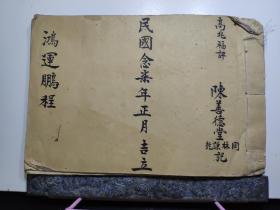 高兆福評
陳善德堂記
同林謙乾
民國念柒年正月吉立
鴻運鵬程